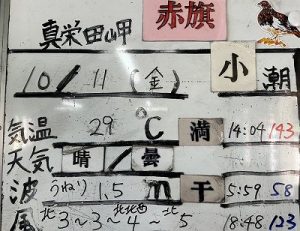 真栄田岬 赤旗
10/11(金) 小潮
気温 29℃ 満 14:04 143
天気 晴/曇
波 うねり 1.5m 干 5:59 58
風 北3～3～北北西4～北5 18:48 123